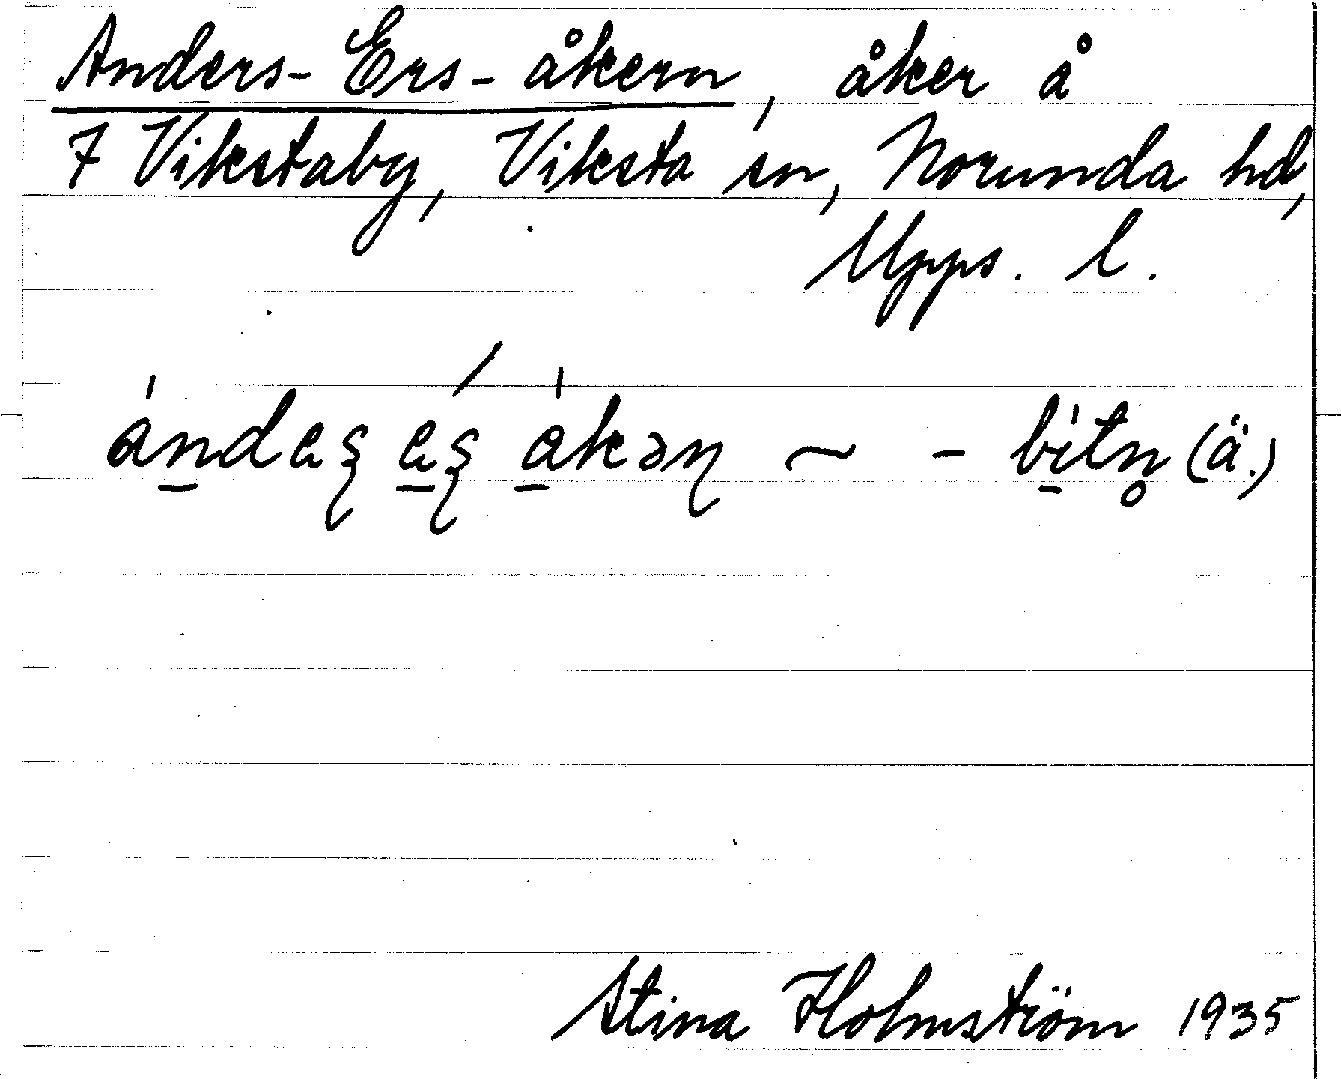 Anders-Ers-åkern, åker å
7 Vikstaby, Viksta sn, Norunda hd,
Upps. l.
~ - (ä.)
Stina Holmström 1935